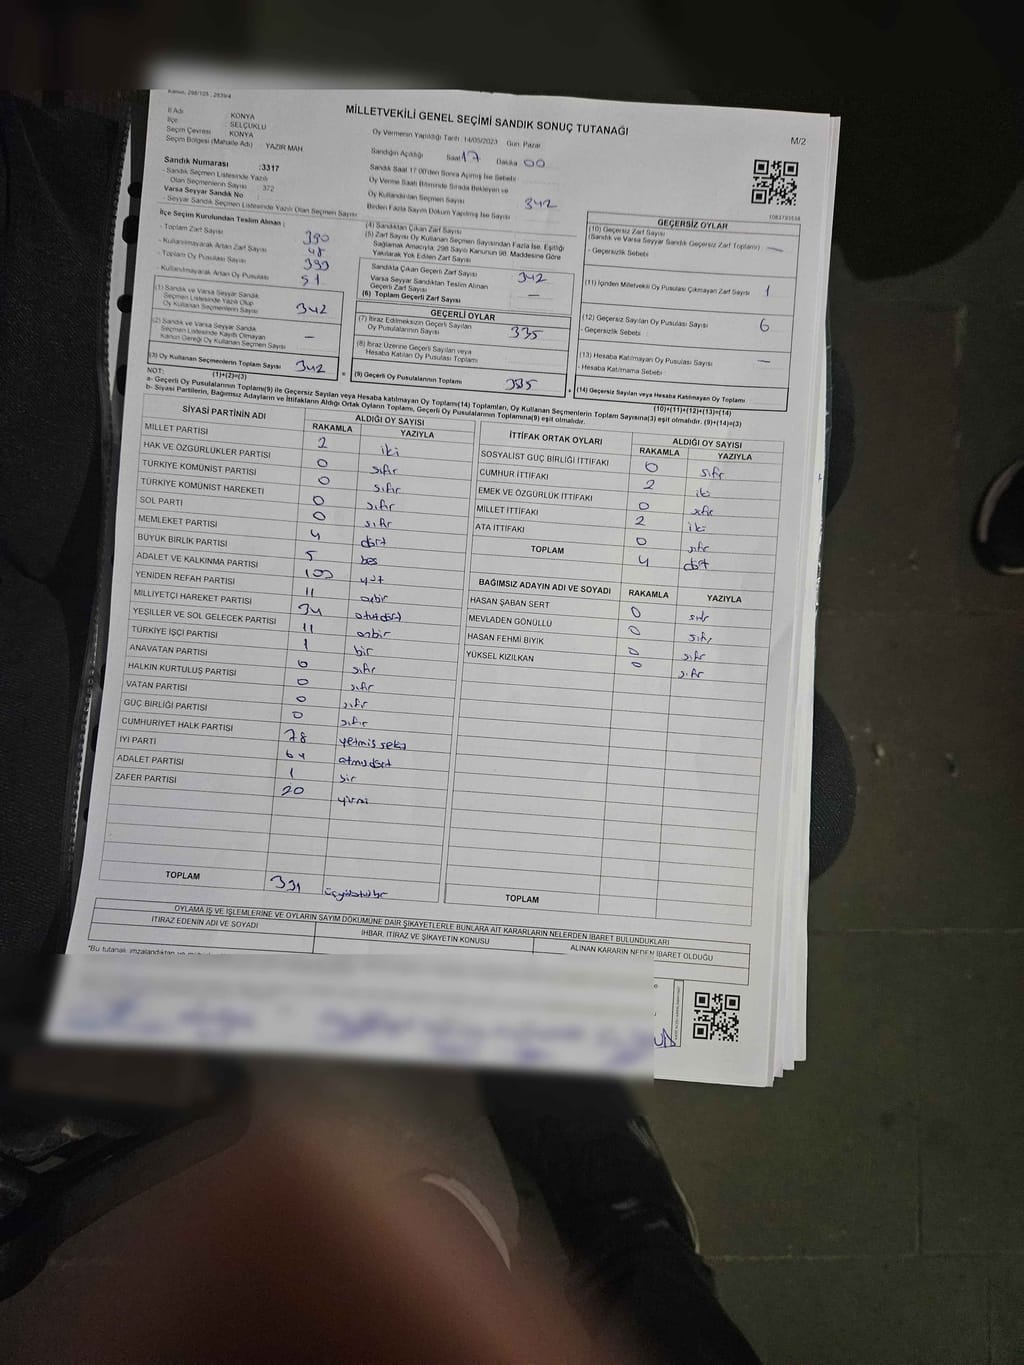 Kanun, 298/105 , 2839/4
MİLLETVEKİLİ GENEL SEÇİMİ SANDIK SONUÇ TUTANAĞI
M/2
İl Adı : KONYA
İlçe : SELÇUKLU
Seçim Çevresi : KONYA
Seçim Bölgesi (Mahalle Adı) : YAZIR MAH
Oy Vermenin Yapıldığı Tarih :14/05/2023 Gün: Pazar
Sandığın Açıldığı Saat 17 Dakika 00
Sandık Saat 17:00'den Sonra Açılmış İse Sebebi
Oy Verme Saati Bitiminde Sırada Bekleyen ve
Oy Kullandırılan Seçmen Sayısı 342
Birden Fazla Sayım Döküm Yapılmış İse Sayısı
Sandık Numarası :3317
- Sandık Seçmen Listesinde Yazılı
Olan Seçmenlerin Sayısı : 372
Varsa Seyyar Sandık No
- Seyyar Sandık Seçmen Listesinde Yazılı Olan Seçmen Sayısı
İlçe Seçim Kurulundan Teslim Alınan :
- Toplam Zarf Sayısı 390
- Kullanılmayarak Artan Zarf Sayısı 48
- Toplam Oy Pusulası Sayısı 393
- Kullanılmayarak Artan Oy Pusulası 51
(1) Sandık ve Varsa Seyyar Sandık
Seçmen Listesinde Yazılı Olup
Oy Kullanan Seçmenlerin Sayısı 342
(2) Sandık ve Varsa Seyyar Sandık
Seçmen Listesinde Kayıtlı Olmayan
Kanun Gereği Oy Kullanan Seçmen Sayısı —
(3) Oy Kullanan Seçmenlerin Toplam Sayısı 342
(1)+(2)=(3)
(4) Sandıktan Çıkan Zarf Sayısı
(5) Zarf Sayısı Oy Kullanan Seçmen Sayısından Fazla İse, Eşitliği
Sağlamak Amacıyla; 298 Sayılı Kanunun 98. Maddesine Göre
Yakılarak Yok Edilen Zarf Sayısı
Sandıkta Çıkan Geçerli Zarf Sayısı : 342
Varsa Seyyar Sandıktan Teslim Alınan
Geçerli Zarf Sayısı —
(6) Toplam Geçerli Zarf Sayısı
GEÇERLİ OYLAR
(7) İtiraz Edilmeksizin Geçerli Sayılan
Oy Pusulalarının Sayısı 335
(8) İtiraz Üzerine Geçerli Sayılan veya
Hesaba Katılan Oy Pusulası Toplamı
(9) Geçerli Oy Pusulalarının Toplamı 335
GEÇERSİZ OYLAR
(10) Geçersiz Zarf Sayısı
(Sandık ve Varsa Seyyar Sandık Geçersiz Zarf Toplamı) —
- Geçersizlik Sebebi
(11) İçinden Milletvekili Oy Pusulası Çıkmayan Zarf Sayısı 1
(12) Geçersiz Sayılan Oy Pusulası Sayısı 6
- Geçersizlik Sebebi
(13) Hesaba Katılmayan Oy Pusulası Sayısı —
- Hesaba Katılmama Sebebi
(14) Geçersiz Sayılan veya Hesaba Katılmayan Oy Toplamı
(10)+(11)+(12)+(13)=(14)
NOT:
a- Geçerli Oy Pusulalarının Toplamı(9) ile Geçersiz Sayılan veya Hesaba katılmayan Oy Toplamı(14) Toplamları, Oy Kullanan Seçmenlerin Toplam Sayısına(3) eşit olmalıdır. (9)+(14)=(3)
b- Siyasi Partilerin, Bağımsız Adayların ve İttifakların Aldığı Ortak Oyların Toplamı, Geçerli Oy Pusulalarının Toplamına(9) eşit olmalıdır.
SİYASİ PARTİNİN ADI ALDIĞI OY SAYISI
RAKAMLA YAZIYLA
MİLLET PARTİSİ 2 iki
HAK VE ÖZGÜRLÜKLER PARTİSİ 0 sıfır
TÜRKİYE KOMÜNİST PARTİSİ 0 sıfır
TÜRKİYE KOMÜNİST HAREKETİ 0 sıfır
SOL PARTİ 0 sıfır
MEMLEKET PARTİSİ 4 dört
BÜYÜK BİRLİK PARTİSİ 5 beş
ADALET VE KALKINMA PARTİSİ 100 yüz
YENİDEN REFAH PARTİSİ 11 onbir
MİLLİYETÇİ HAREKET PARTİSİ 34 otuzdört
YEŞİLLER VE SOL GELECEK PARTİSİ 11 onbir
TÜRKİYE İŞÇİ PARTİSİ 1 bir
ANAVATAN PARTİSİ 0 sıfır
HALKIN KURTULUŞ PARTİSİ 0 sıfır
VATAN PARTİSİ 0 sıfır
GÜÇ BİRLİĞİ PARTİSİ 0 sıfır
CUMHURİYET HALK PARTİSİ 78 yetmiş sekiz
İYİ PARTİ 64 atmışdört
ADALET PARTİSİ 1 bir
ZAFER PARTİSİ 20 yirmi
TOPLAM 331 üçyüzotuzbir
İTTİFAK ORTAK OYLARI ALDIĞI OY SAYISI
RAKAMLA YAZIYLA
SOSYALİST GÜÇ BİRLİĞİ İTTİFAKI 0 sıfır
CUMHUR İTTİFAKI 2 iki
EMEK VE ÖZGÜRLÜK İTTİFAKI 0 sıfır
MİLLET İTTİFAKI 2 iki
ATA İTTİFAKI 0 sıfır
TOPLAM 4 dört
BAĞIMSIZ ADAYIN ADI VE SOYADI RAKAMLA YAZIYLA
HASAN ŞABAN SERT 0 sıfır
MEVLADEN GÖNÜLLÜ 0 sıfır
HASAN FEHMİ BIYIK 0 sıfır
YÜKSEL KIZILKAN 0 sıfır
TOPLAM
OYLAMA İŞ VE İŞLEMLERİNE VE OYLARIN SAYIM DÖKÜMÜNE DAİR ŞİKAYETLERLE BUNLARA AİT KARARLARIN NELERDEN İBARET BULUNDUKLARI
İTİRAZ EDENİN ADI VE SOYADI İHBAR, İTİRAZ VE ŞİKAYETİN KONUSU ALINAN KARARIN NEDEN İBARET OLDUĞU
*Bu tutanak imzalandıktan